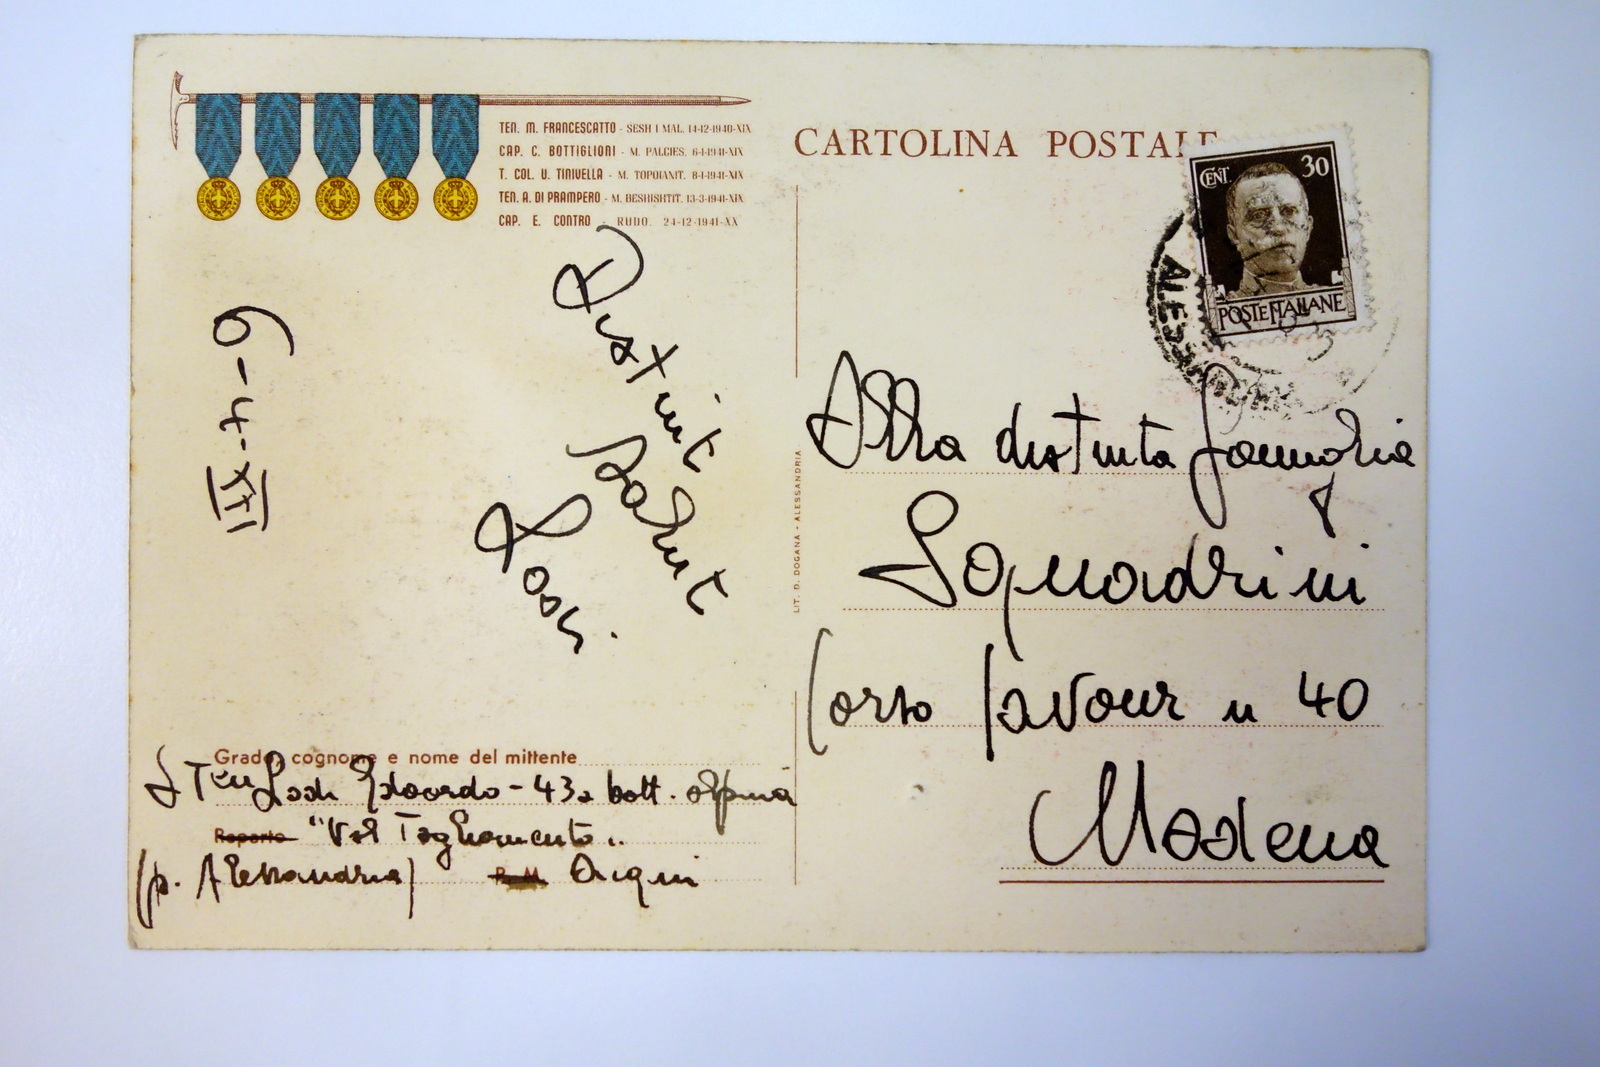 TEN. M. FRANCESCATTO - SESH I MAL. 14-12-1940-XIX
CAP. C. BOTTIGLIONI - M. PALCIES. 6-1-1941-XIX
T. COL. U. TINIVELLA - M. TOPOIANIT. 8-1-1941-XIX
TEN. A. DI PRAMPERO - M. BESHISHTIT. 13-3-1941-XIX
CAP. E. CONTRO - RUDO. 24-12-1941-XX
CARTOLINA POSTALE
CENT. 30
POSTE ITALIANE
ALESSANDRIA
6-4-XXI
Distinti
saluti
Alla distinta famiglia
Squadrini
Corso Cavour n 40
Modena
LIT. D. DOGANA - ALESSANDRIA
Grado, cognome e nome del mittente
S Ten Edoardo - 43a batt. alpina
Reparto "Val Tagliamento"
(p. Alessandria) P. M. Acqui